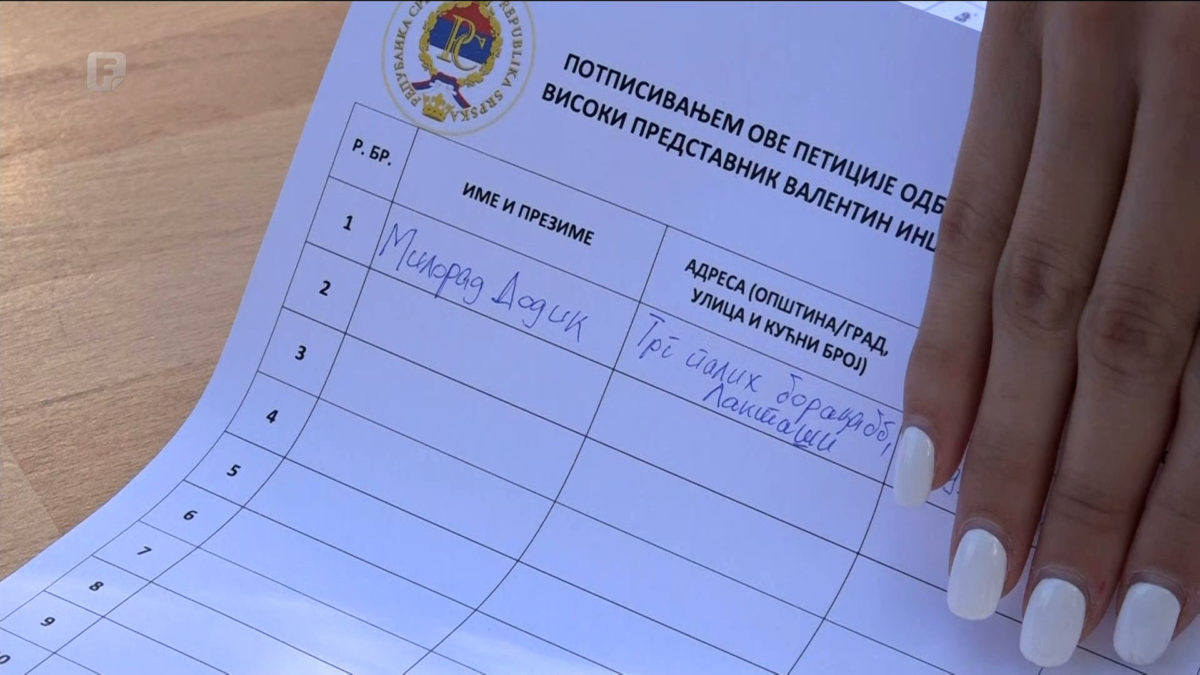 F
РЕПУБЛИКА СРПСКА REPUBLIKA SRPSKA
ПОТПИСИВАЊЕМ ОВЕ ПЕТИЦИЈЕ ОДБ
ВИСОКИ ПРЕДСТАВНИК ВАЛЕНТИН ИНЦ
Р. БР.
ИМЕ И ПРЕЗИМЕ
АДРЕСА (ОПШТИНА/ГРАД,
УЛИЦА И КУЋНИ БРОЈ)
1
Милорад Додик
Трг палих бораца бб,
Лакташи
2
3
4
5
6
7
8
9